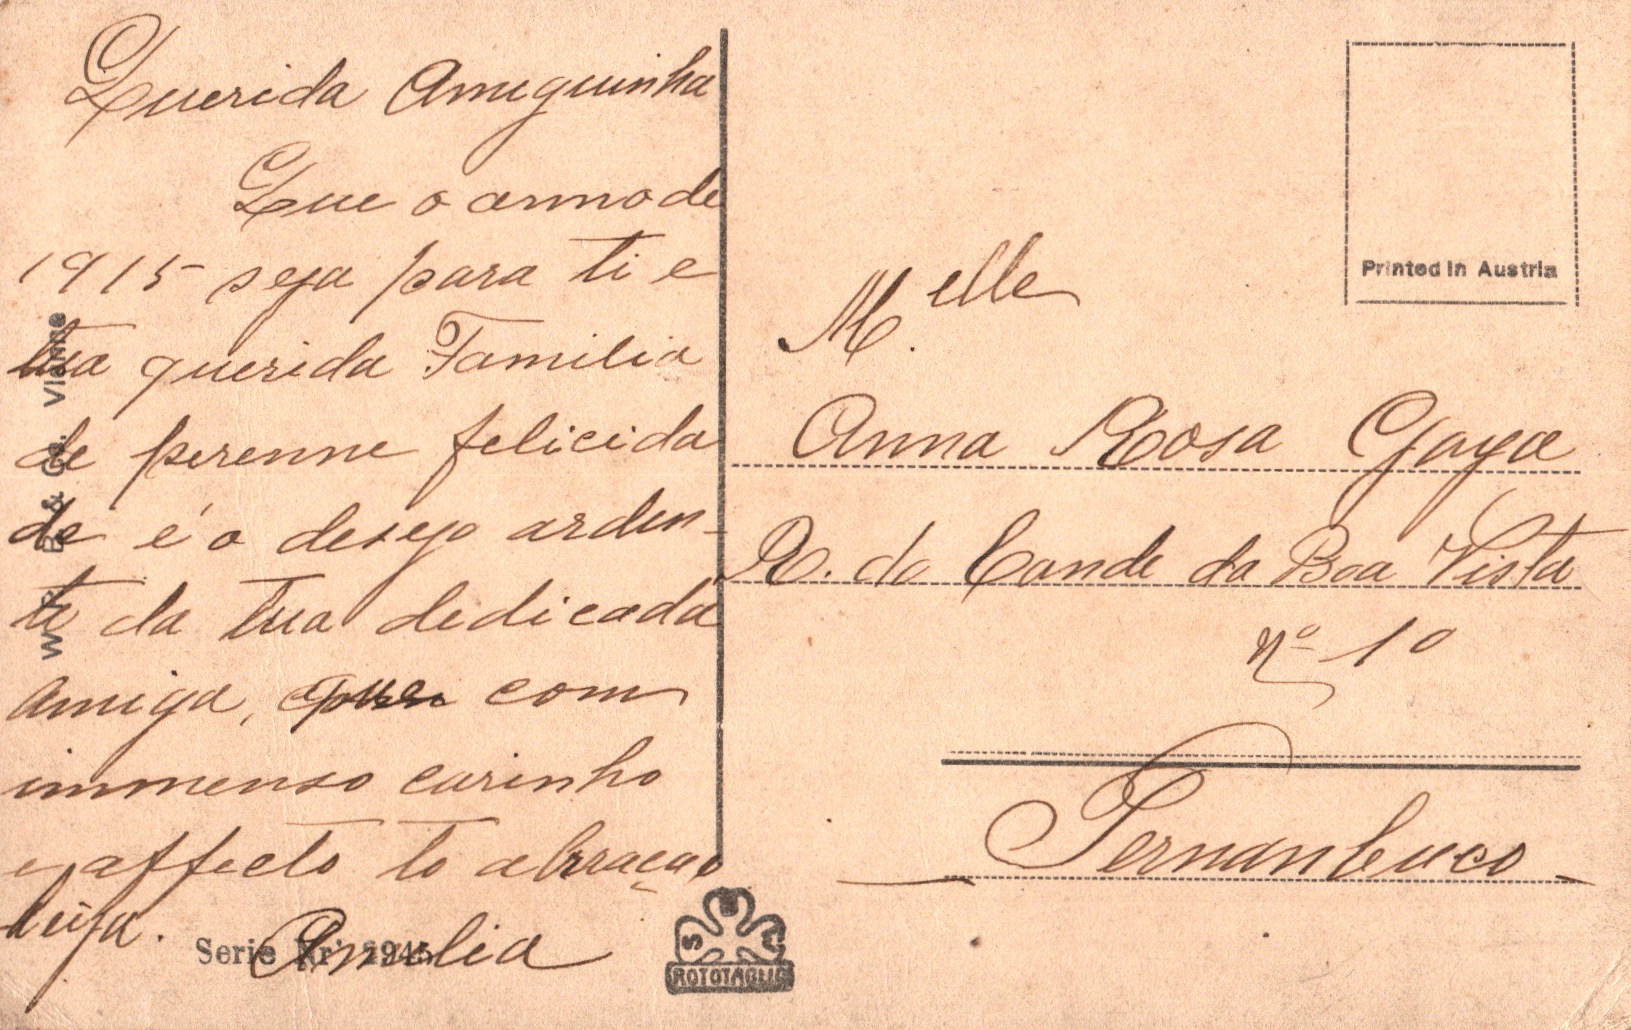 Querida Amiguinha
Que o anno de
1915 seja para ti e
tua querida Familia
de perenne felicida
de é o desejo arden-
te da tua dedicada
amiga, que com
immenso carinho
e affecto te abraça e
beija.
Amelia
Serie Nr. 2945
W. & Co. Vienne
ROTOTAGLIO
Printed in Austria
M.elle
Anna Rosa Gaya
R. do Conde da Boa Vista
nº 10
Pernambuco